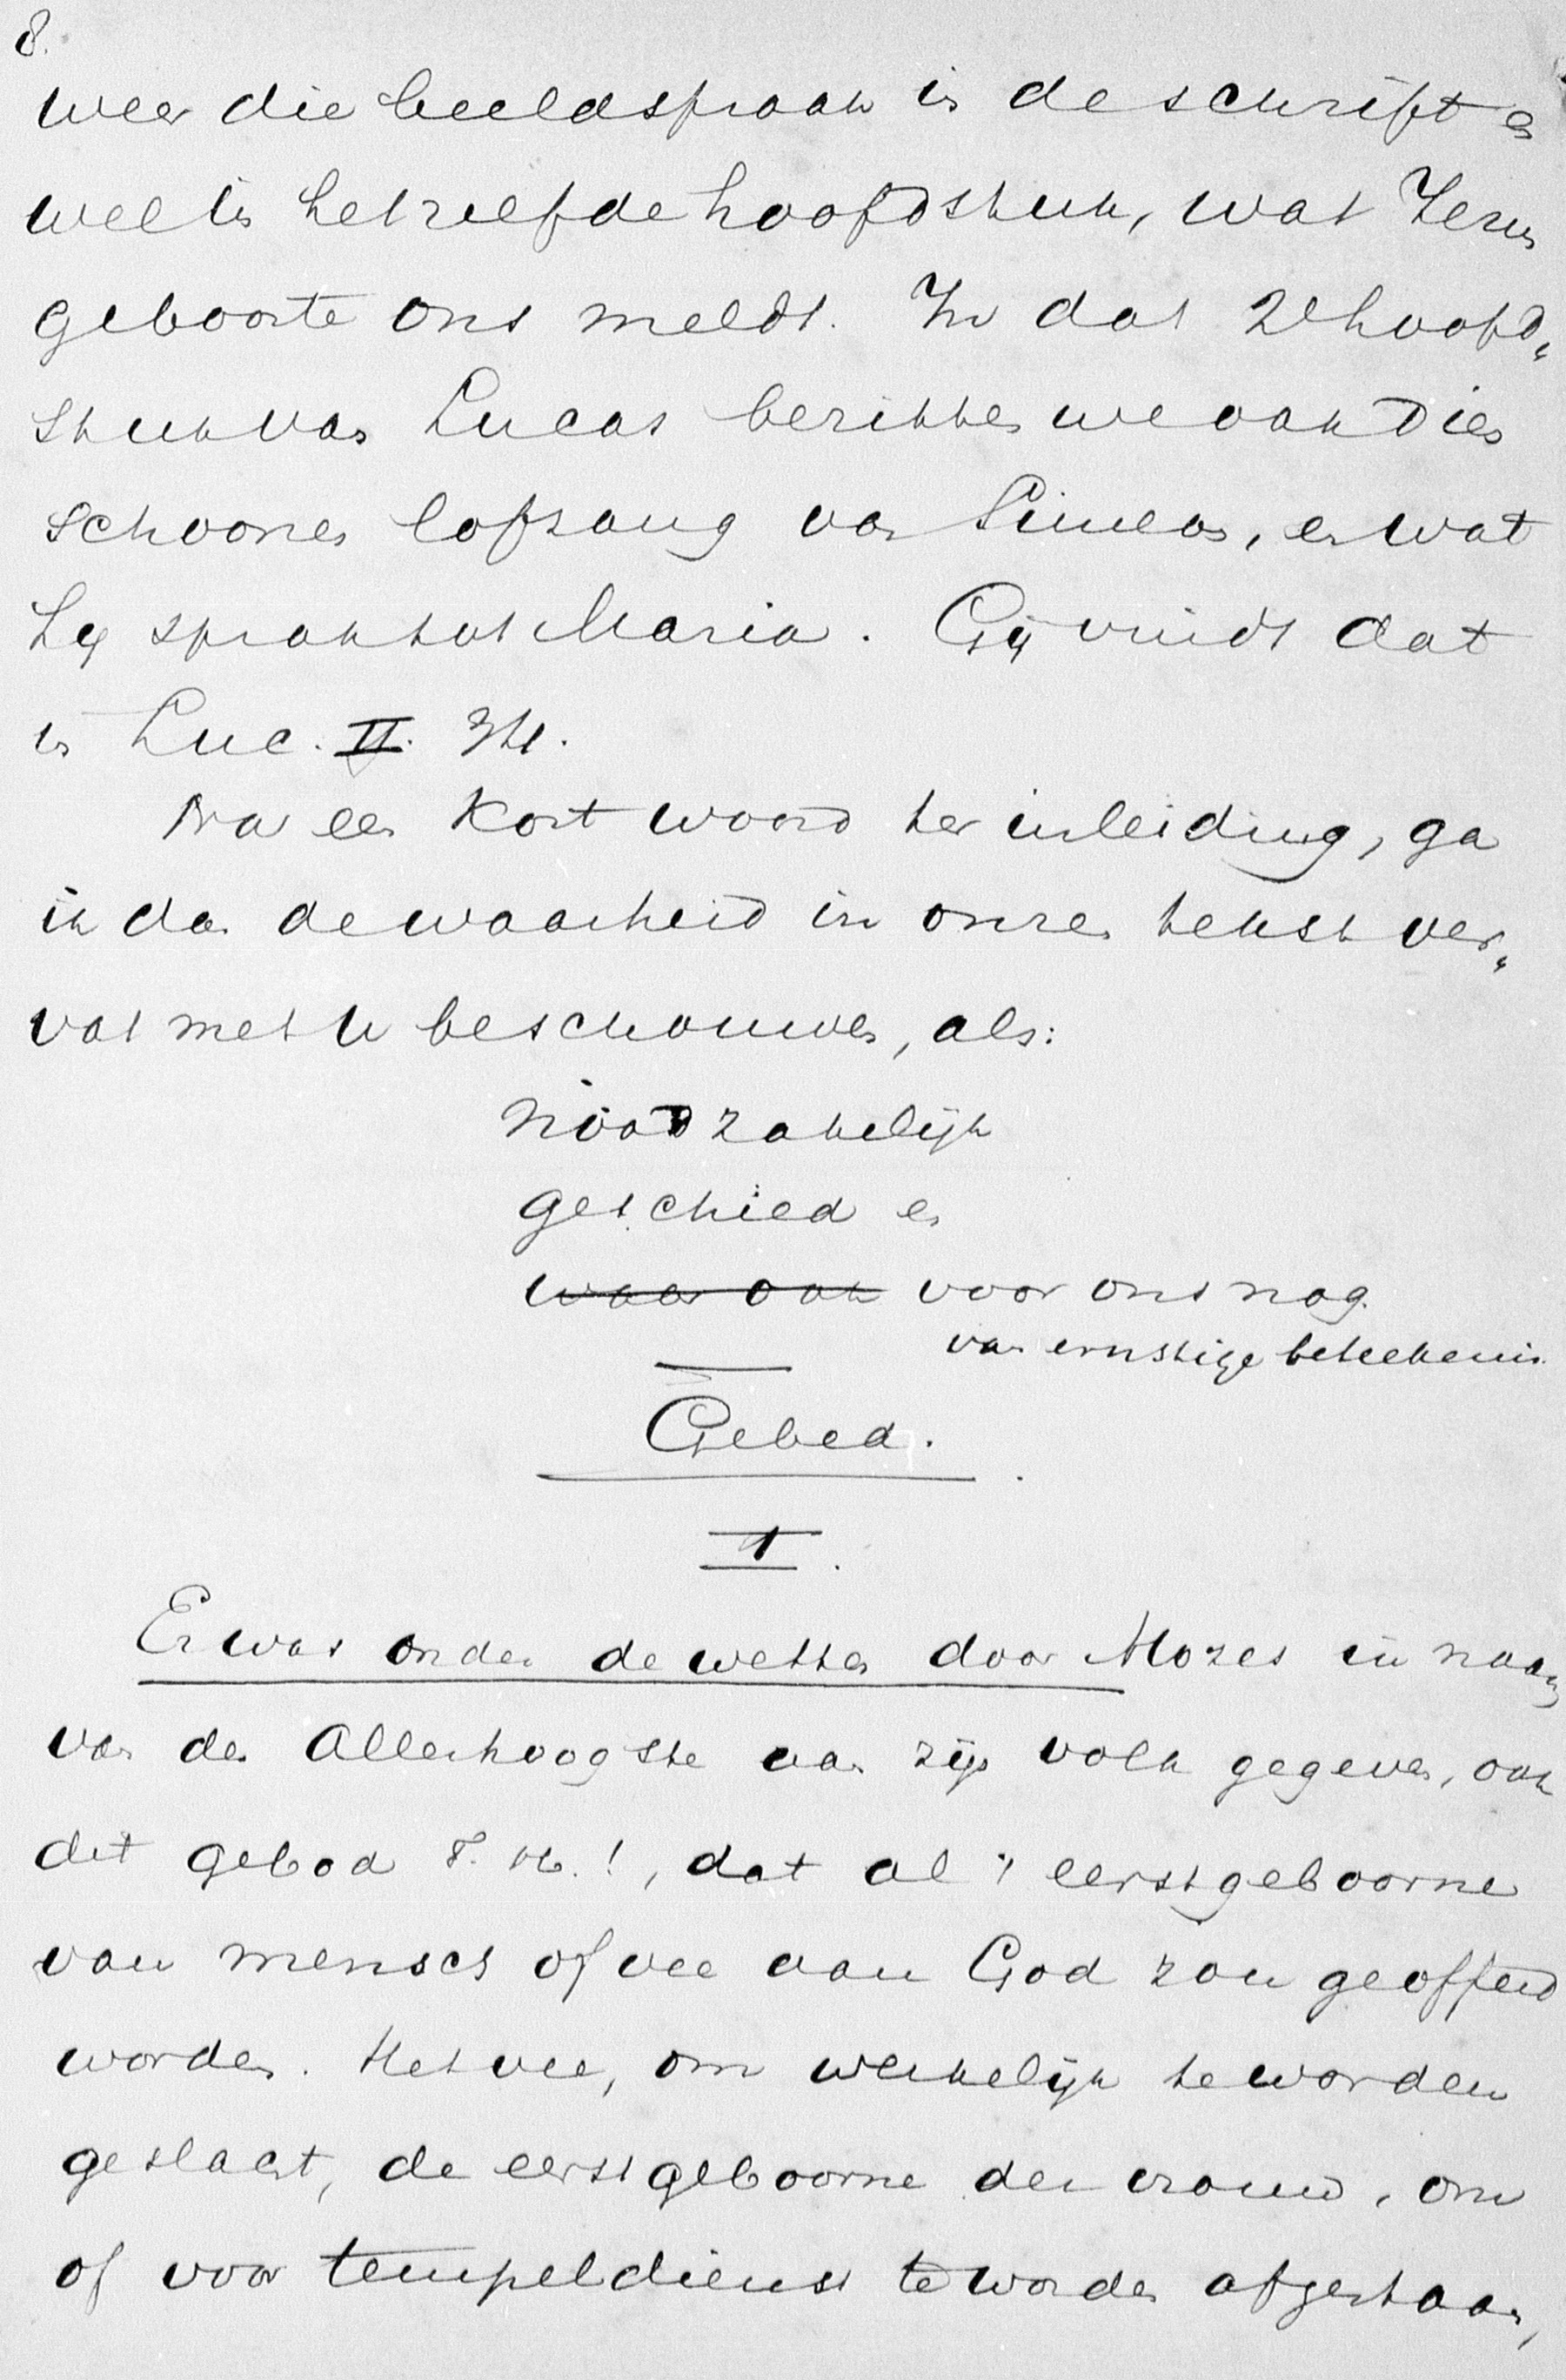 8.
weer die beeldspraak in de schrift en
wel in hetzelfde hoofdstuk, wat Jezus
geboorte ons meldt. In dat 2e hoofd„
stuk van Lucas bezitten we ook dien
schoonen lofzang van Simeon, en wat
hij sprak tot Maria. Gij vindt dat
in Luc. II. 34.
Na een kort woord ter inleiding, ga
ik dan de waarheid in onzen tekst ver„
vat met U beschouwen, als:
noodzakelijk
geschied en
waar ook voor ons nog
van ernstige beteekenis.
Gebed.
I.
Er was onder de wetten door Mozes in naam
van den Allerhoogste aan zijn volk gegeven, ook
dit gebod T. H.!, dat al 't eerstgeboorne
van mensch of vee aan God zou geofferd
worden. Het vee, om werkelijk te worden
geslacht, de eerstgeboorne der vrouw, om
of voor tempeldienst te worden afgestaan,